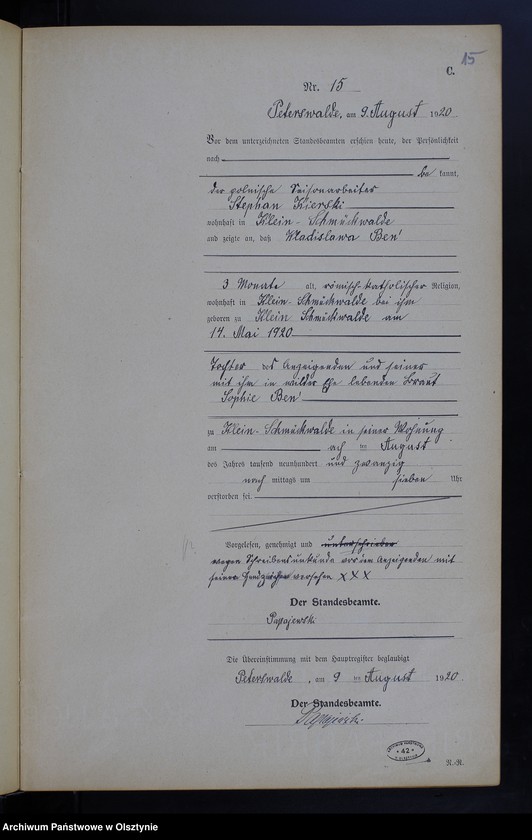 15
C.
Nr. 15
Peterswalde, am 9. August 1920
Vor dem unterzeichneten Standesbeamten erschien heute, der Persönlichkeit
nach
be kannt,
der polnische Saisonarbeiter
Stephan Kierski
wohnhaft in Klein-Schmückwalde
und zeigte an, daß Wladislawa Ben'
3 Monate alt, römisch-katholischer Religion,
wohnhaft in Klein-Schmückwalde bei ihm
geboren zu Klein Schmückwalde am
14. Mai 1920
Tochter des Anzeigenden und seiner
mit ihm in wilder Ehe lebenden Braut
Sophie Ben'
zu Klein-Schmückwalde in seiner Wohnung
am ten August
des Jahres tausend neunhundert und zwanzig
nach mittags um sieben Uhr
verstorben sei.
Vorgelesen, genehmigt und unterschrieben
wegen Schreibensunkunde von dem Anzeigenden mit
seinem Handzeichen versehen X X X
Der Standesbeamte.
Papajewski
Die Übereinstimmung mit dem Hauptregister beglaubigt
Peterswalde, am 9 ten August 1920
Der Standesbeamte.
Papajewski
42
R.-R.
Archiwum Państwowe w Olsztynie